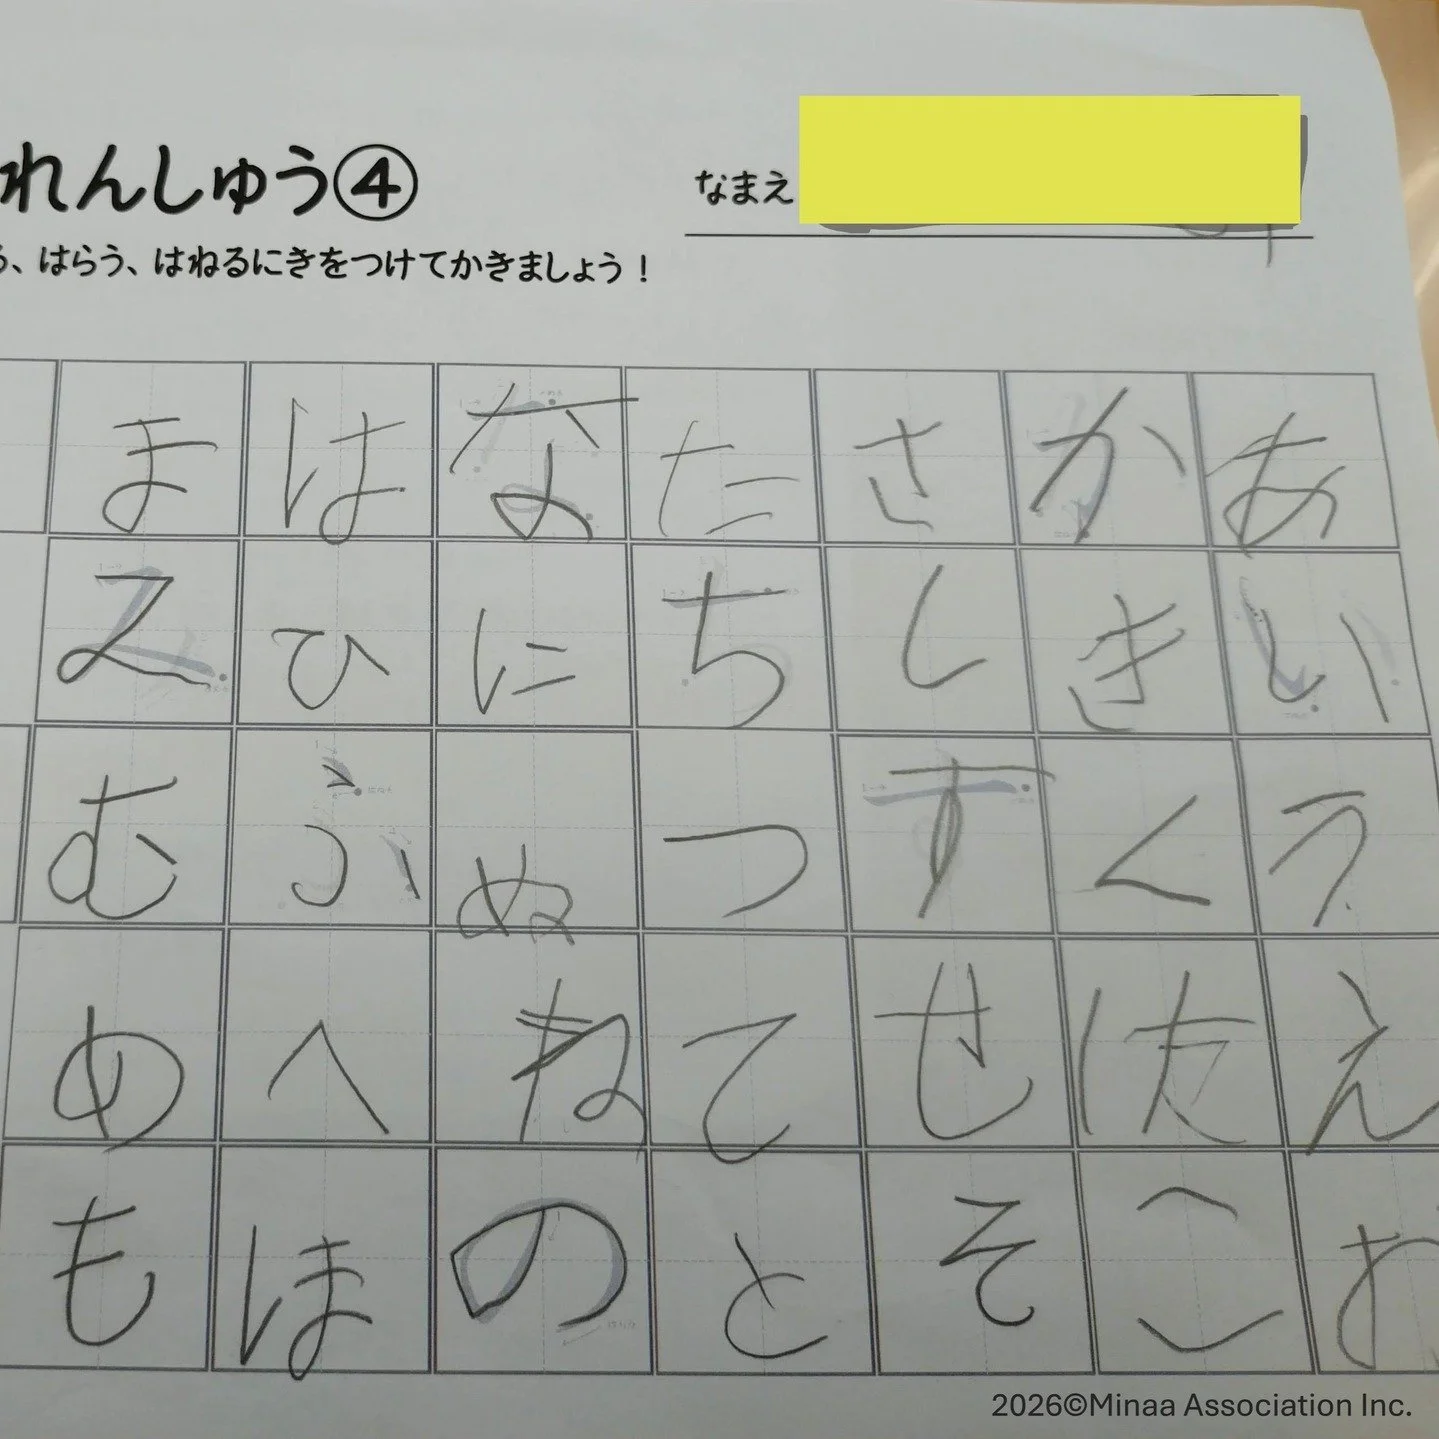 れんしゅう④
なまえ
、はらう、はねるにきをつけてかきましょう！
まはなたさかあ
みひにちしきい
むふぬつすくう
めへねてせけえ
もほのとそこお
2026©Minaa Association Inc.